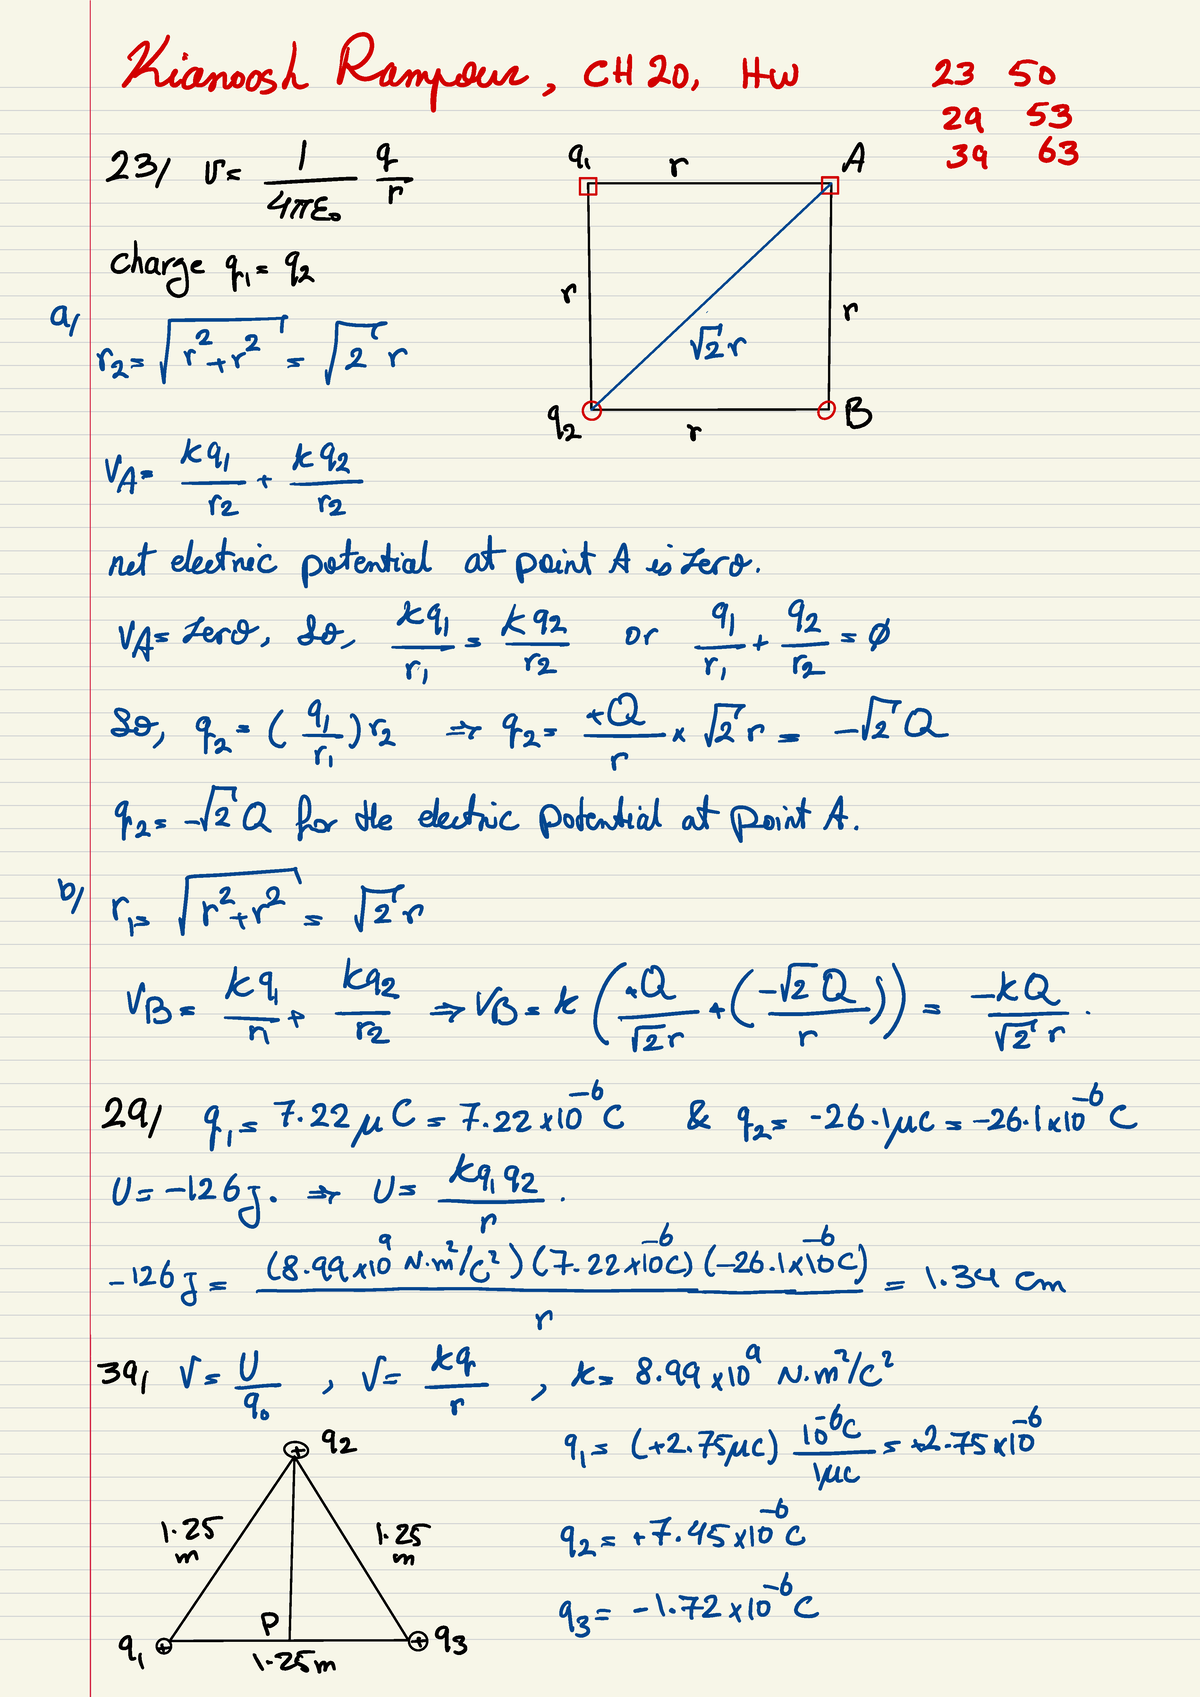 Kianoosh Rampour, CH 20, HW
23 50
29 53
39 63
23/ V = 1/(4πε₀) q/r
q₁ r A
r r
√2 r
q₂ r B
charge q₁ = q₂
a/ r₂ = √(r² + r²) = √2 r
V_A = kq₁/r₂ + kq₂/r₂
net electric potential at point A is zero.
V_A = zero, so, kq₁/r₁ = kq₂/r₂ or q₁/r₁ + q₂/r₂ = ∅
So, q₂ = (q₁/r₁) r₂ ⇒ q₂ = +Q/r × √2 r = -√2 Q
q₂ = -√2 Q for the electric potential at point A.
b/ r₁ = √(r² + r²) = √2 r
V_B = kq₁/r₁ + kq₂/r₂ ⇒ V_B = k (+Q/(√2 r) + (-√2 Q/r)) = -kQ/(√2 r).
29/ q₁ = 7.22 μC = 7.22 × 10⁻⁶ C & q₂ = -26.1 μC = -26.1 × 10⁻⁶ C
U = -126 J. ⇒ U = kq₁q₂/r.
-126 J = (8.99 × 10⁹ N.m²/C²)(7.22 × 10⁻⁶ C)(-26.1 × 10⁻⁶ C)/r = 1.34 cm
39/ V = U/q₀, V = kq/r, k = 8.99 × 10⁹ N.m²/C²
q₁ = (+2.75 μC) 10⁻⁶ C/1 μC = +2.75 × 10⁻⁶
q₂ = +7.45 × 10⁻⁶ C
q₃ = -1.72 × 10⁻⁶ C
+ q₂
1.25 m 1.25 m
q₁ + P + q₃
1.25 m